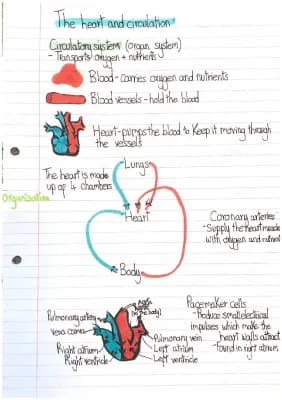 The heart and circulation
Circulatory system (organ system)
- Transports oxygen + nutrients
Blood - carries oxygen and nutrients
Blood vessels - hold the blood
Heart - pumps the blood to keep it moving through
the vessels
Lungs
The heart is made
up of 4 chambers
Organisation
Heart
Coronary arteries
- Supply the heart muscle
with oxygen and nutrient
Body
Pulmonary artery
vena cava
Right atrium
Right ventricle
(to the body)
Pulmonary vein
Left atrium
Left ventricle
Pacemaker cells
- Produce small electrical
impulses which make the
heart walls
- found in right atrium